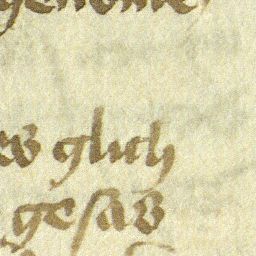 genome
es glich
gesas